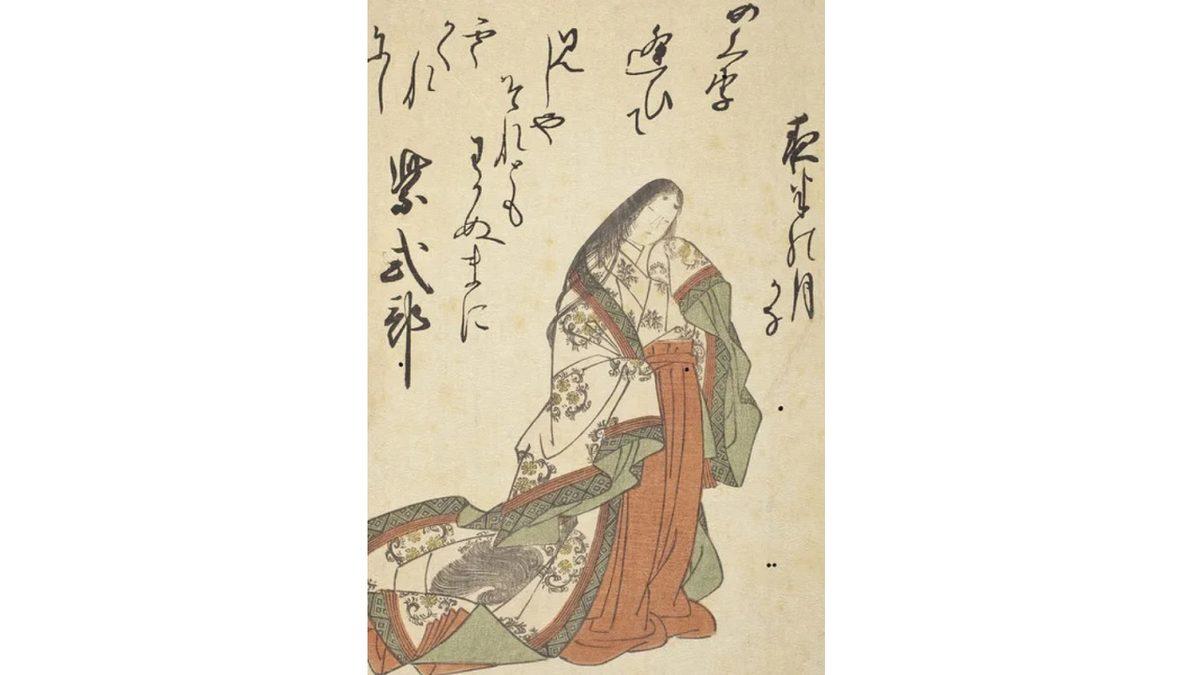 めくり
逢ひて
見しや
それとも
わかぬまに
雲
かく
れ
にし
夜半の月
かな
紫式部